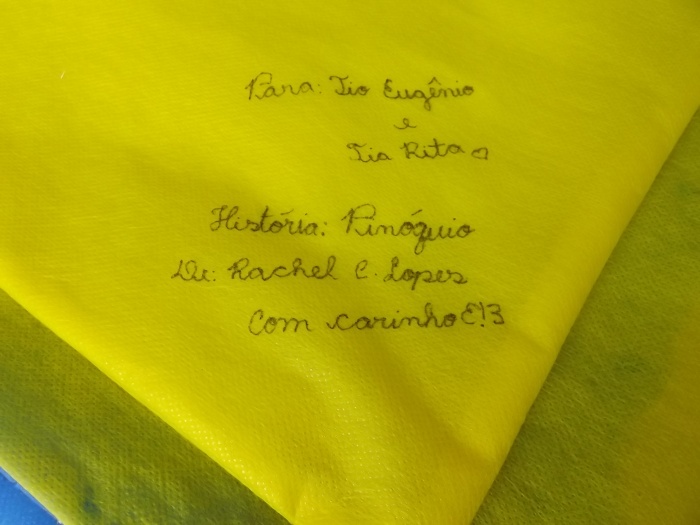 Para: Tio Eugênio
e
Tia Rita ♡
História: Pinóquio
De: Rachel C. Lopes
Com carinho Ɛ!3